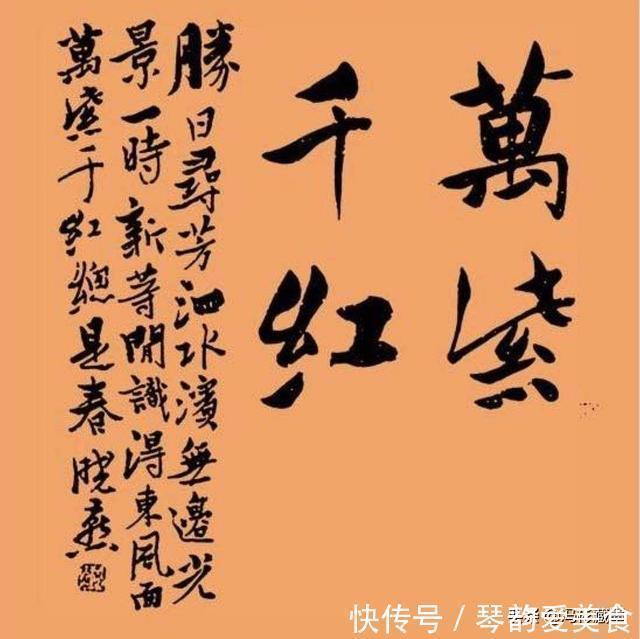 萬紫
千红
勝日尋芳泗水濱無邊光
景一時新等閒識得東風面
萬紫千红總是春 晓燕
快传号 / 琴韵爱美食